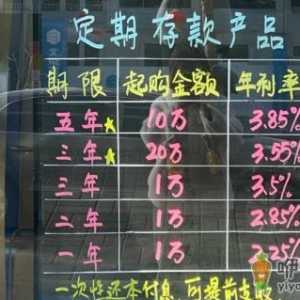 定期存款产品
期限 起购金额 年利率
五年★ 10万 3.85%
三年★ 20万 3.55%
三年 1万 3.5%
二年 1万 2.85%
一年 1万 2.25%
一次性还本付息 可提前支取